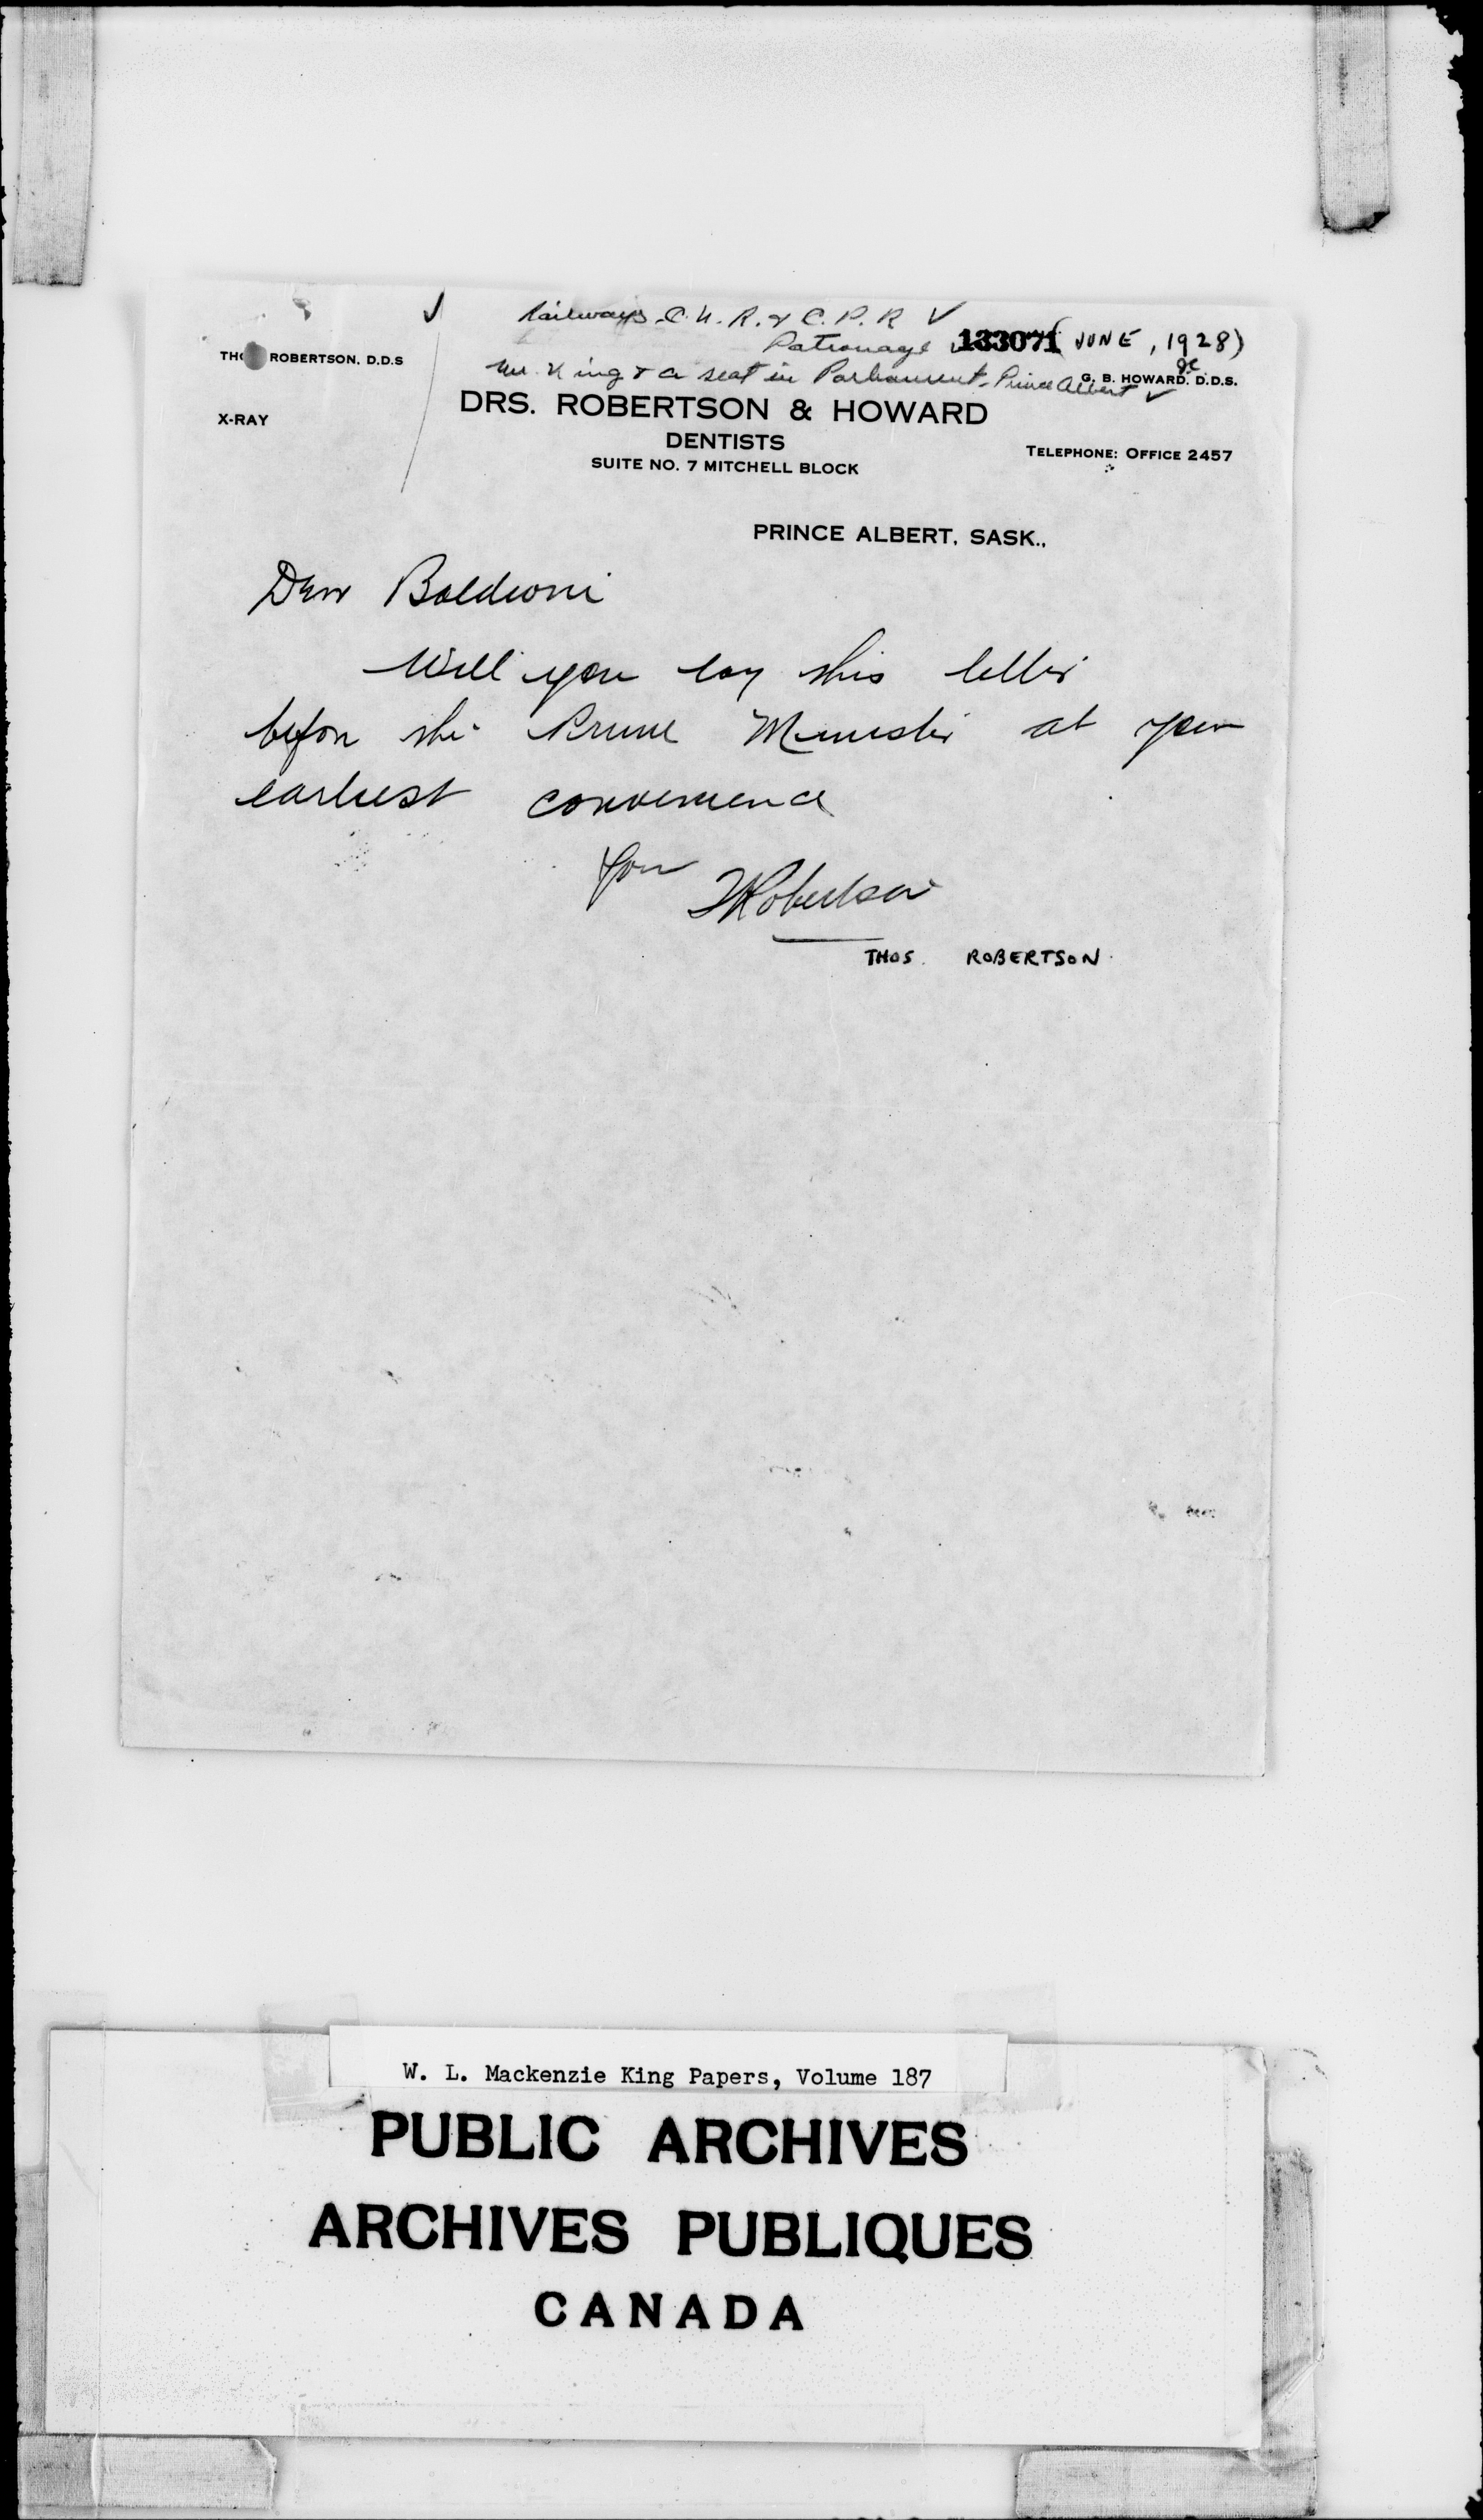 Railways - C.N.R. & C.P.R
Patronage 133071 (JUNE, 1928)
Mr. King & a seat in Parliament - Prince Albert
THO ROBERTSON, D.D.S
G. B. HOWARD, D.D.S.
X-RAY
DRS. ROBERTSON & HOWARD
DENTISTS
SUITE NO. 7 MITCHELL BLOCK
TELEPHONE: OFFICE 2457
PRINCE ALBERT, SASK.,
Dear Baldwin
Will you lay this letter
before the Prime Minister at your
earliest convenience
Your
T Robertson
THOS. ROBERTSON.
W. L. Mackenzie King Papers, Volume 187
PUBLIC ARCHIVES
ARCHIVES PUBLIQUES
CANADA